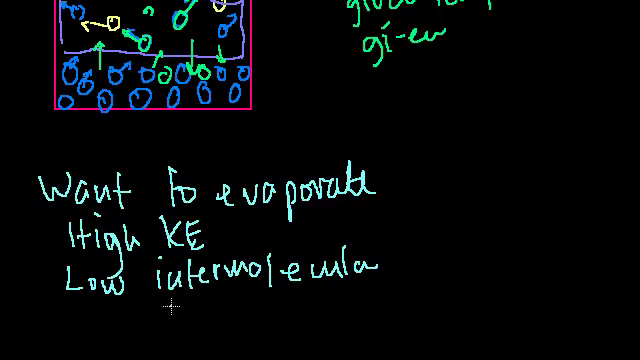 given
Want to evaporate
High KE
Low intermolecula